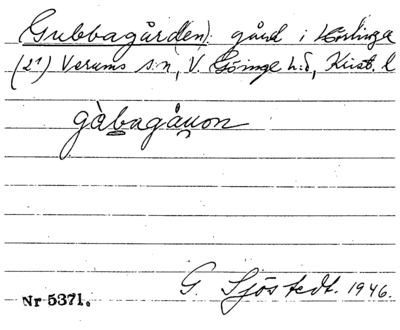 Gubbagård(en): gård i Hörlinge
(2¹) Verums s:n, V. Göinge h:d, Krist. l
gàbagåuon
G. Sjöstedt. 1946.
Nr 5371.